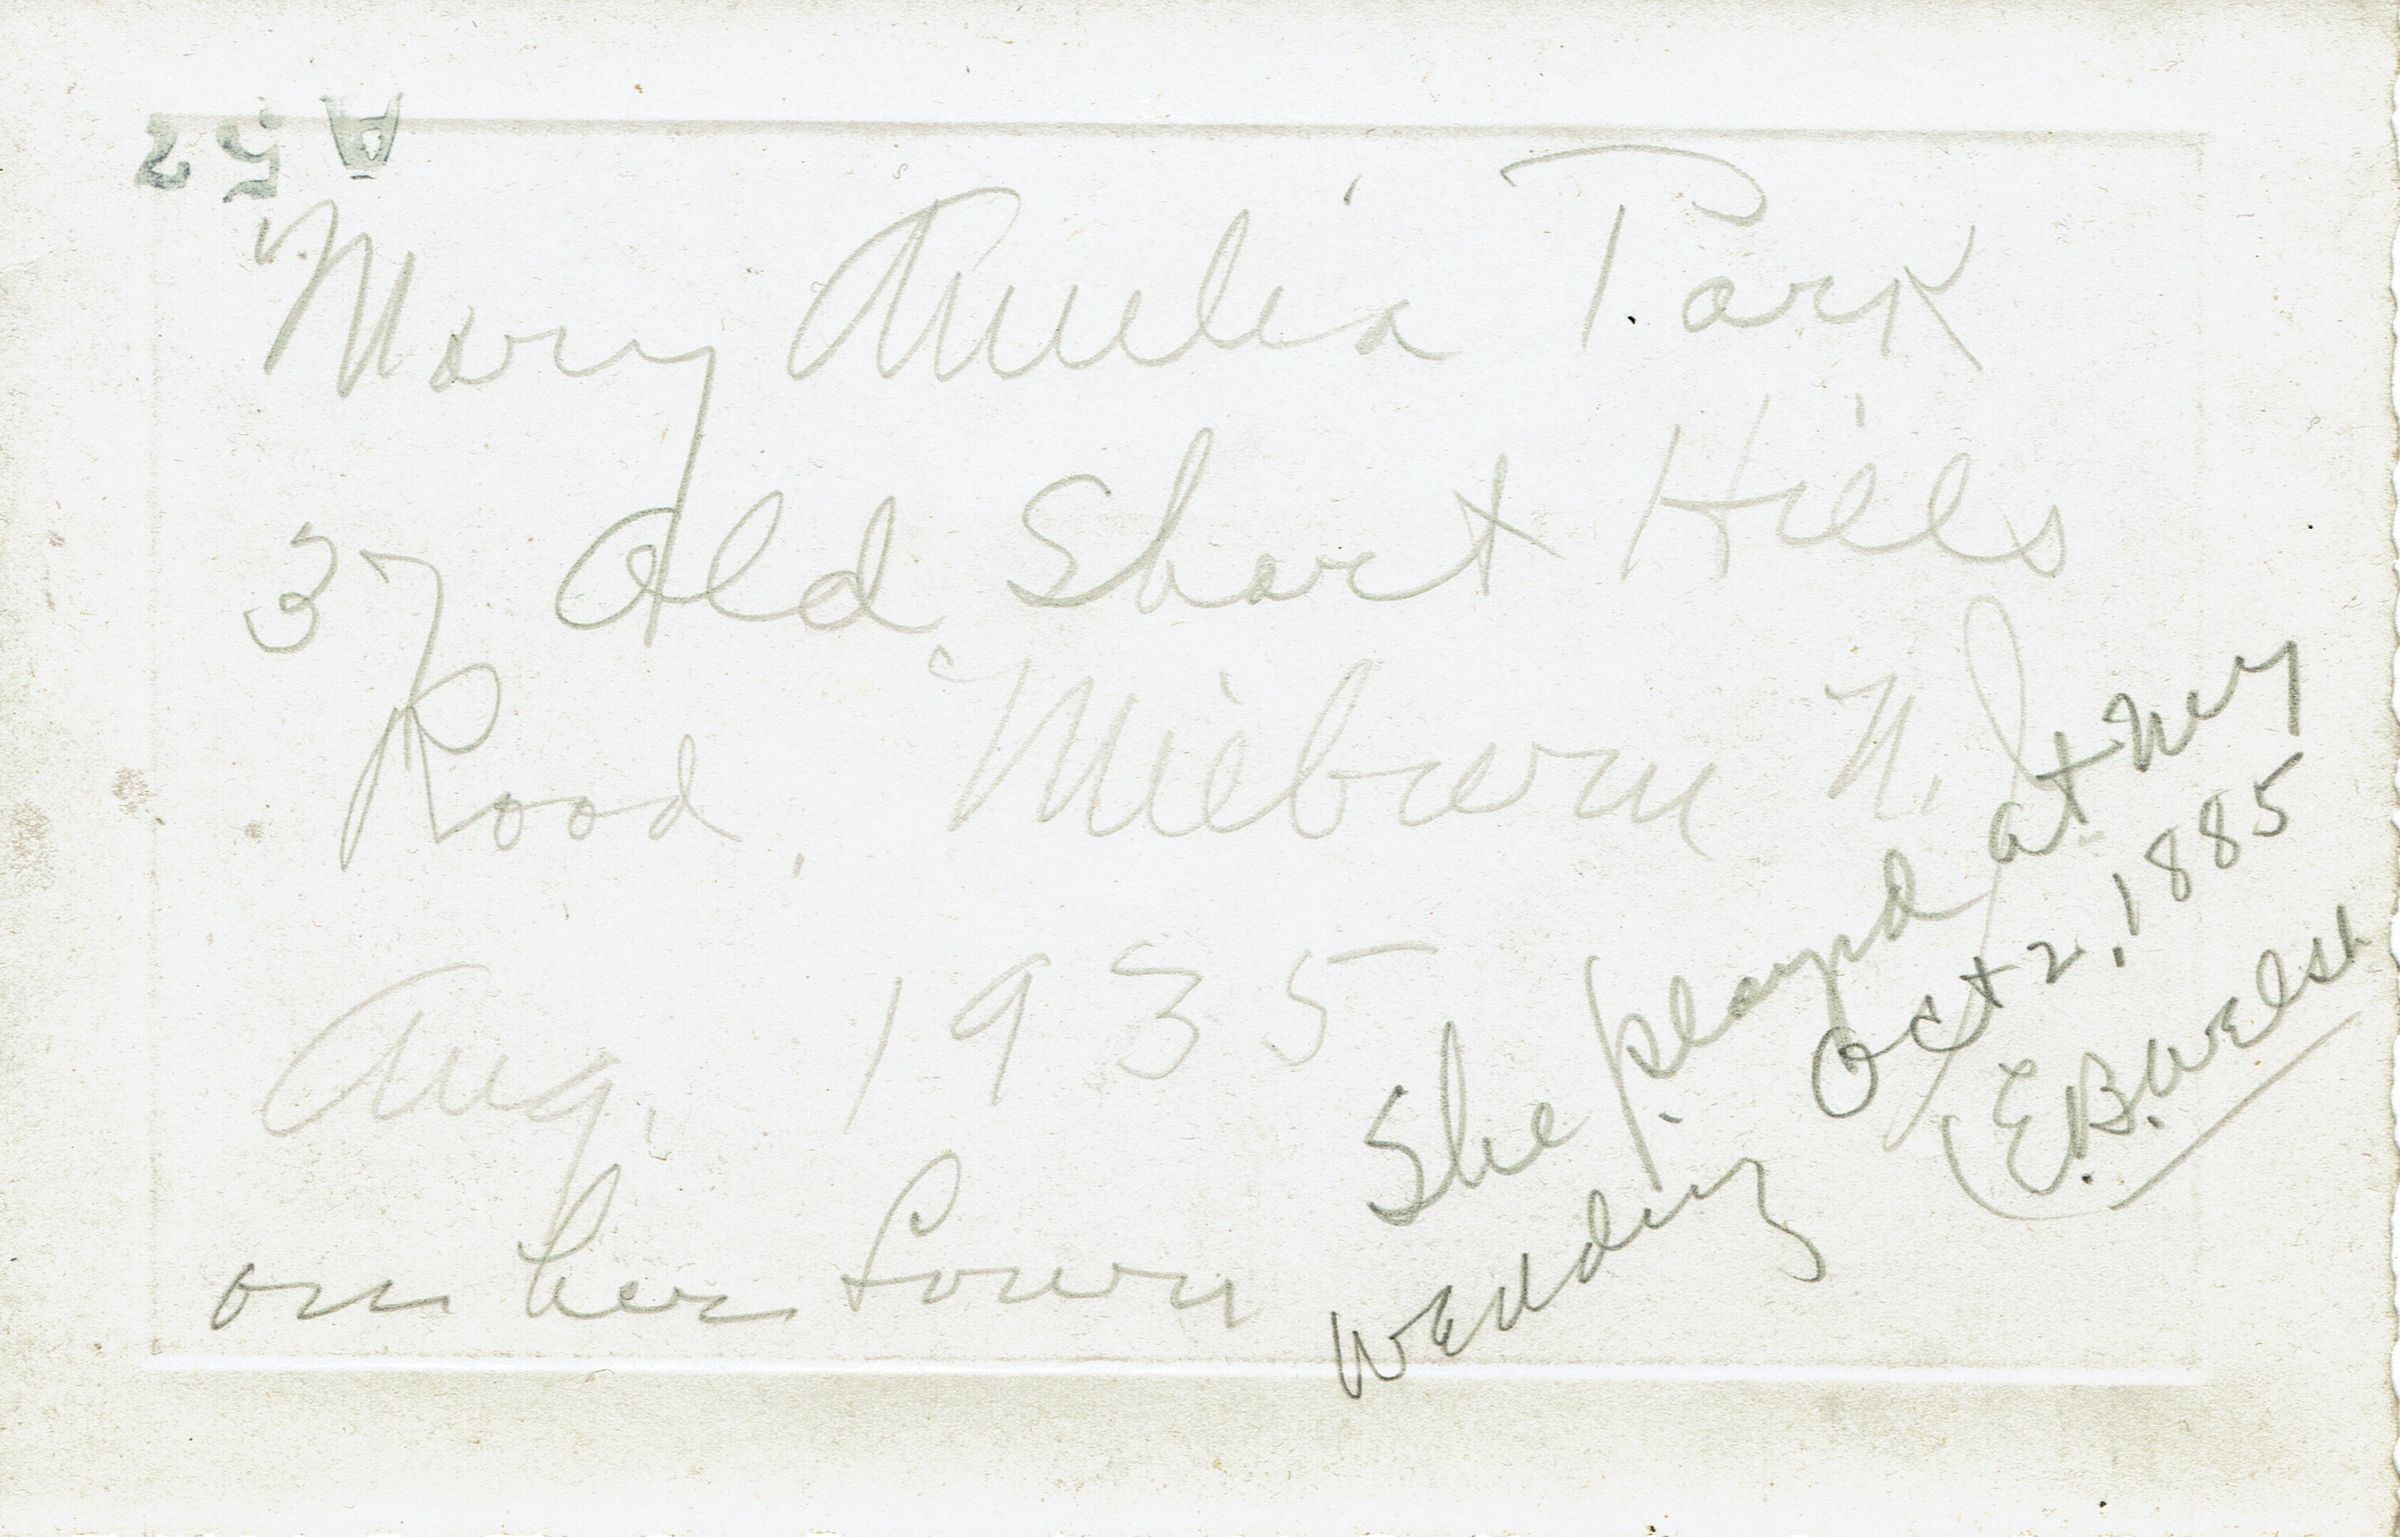 A 52
Mary Amelia Park
37 Old Short Hills
Road, Milburn N.J
Aug. 1935
on her lawn
She played at my
wedding Oct 2, 1885
(E.B. Welsh